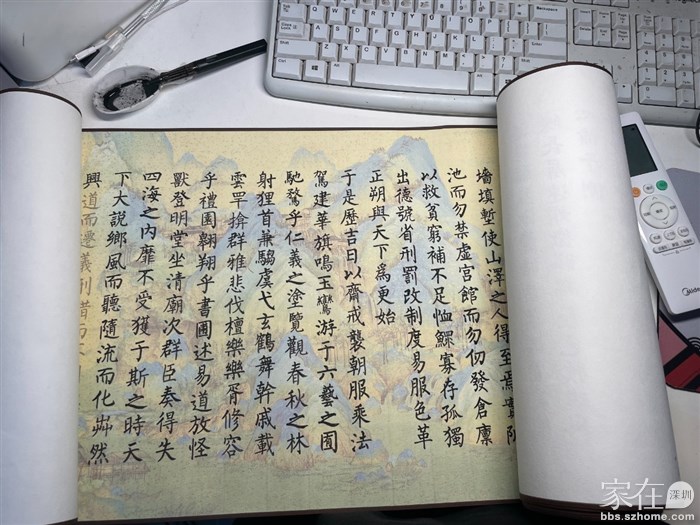 墻填塹使山澤之人得至焉實陂
池而勿禁虛宮館而勿仞發倉廩
以救貧窮補不足恤鰥寡存孤獨
出德號省刑罰改制度易服色革
正朔與天下爲更始
于是歷吉日以齋戒襲朝服乘法
駕建華旗鳴玉鸞游于六藝之囿
馳騖乎仁義之塗覽觀春秋之林
射狸首兼騶虞弋玄鶴舞幹戚載
雲罕揜群雅悲伐檀樂樂胥修容
乎禮園翱翔乎書圃述易道放怪
獸登明堂坐清廟次群臣奏得失
四海之內靡不受獲于斯之時天
下大説鄉風而聽隨流而化芔然
興道而遷義刑措而
Midea
家在深圳
bbs.szhome.com